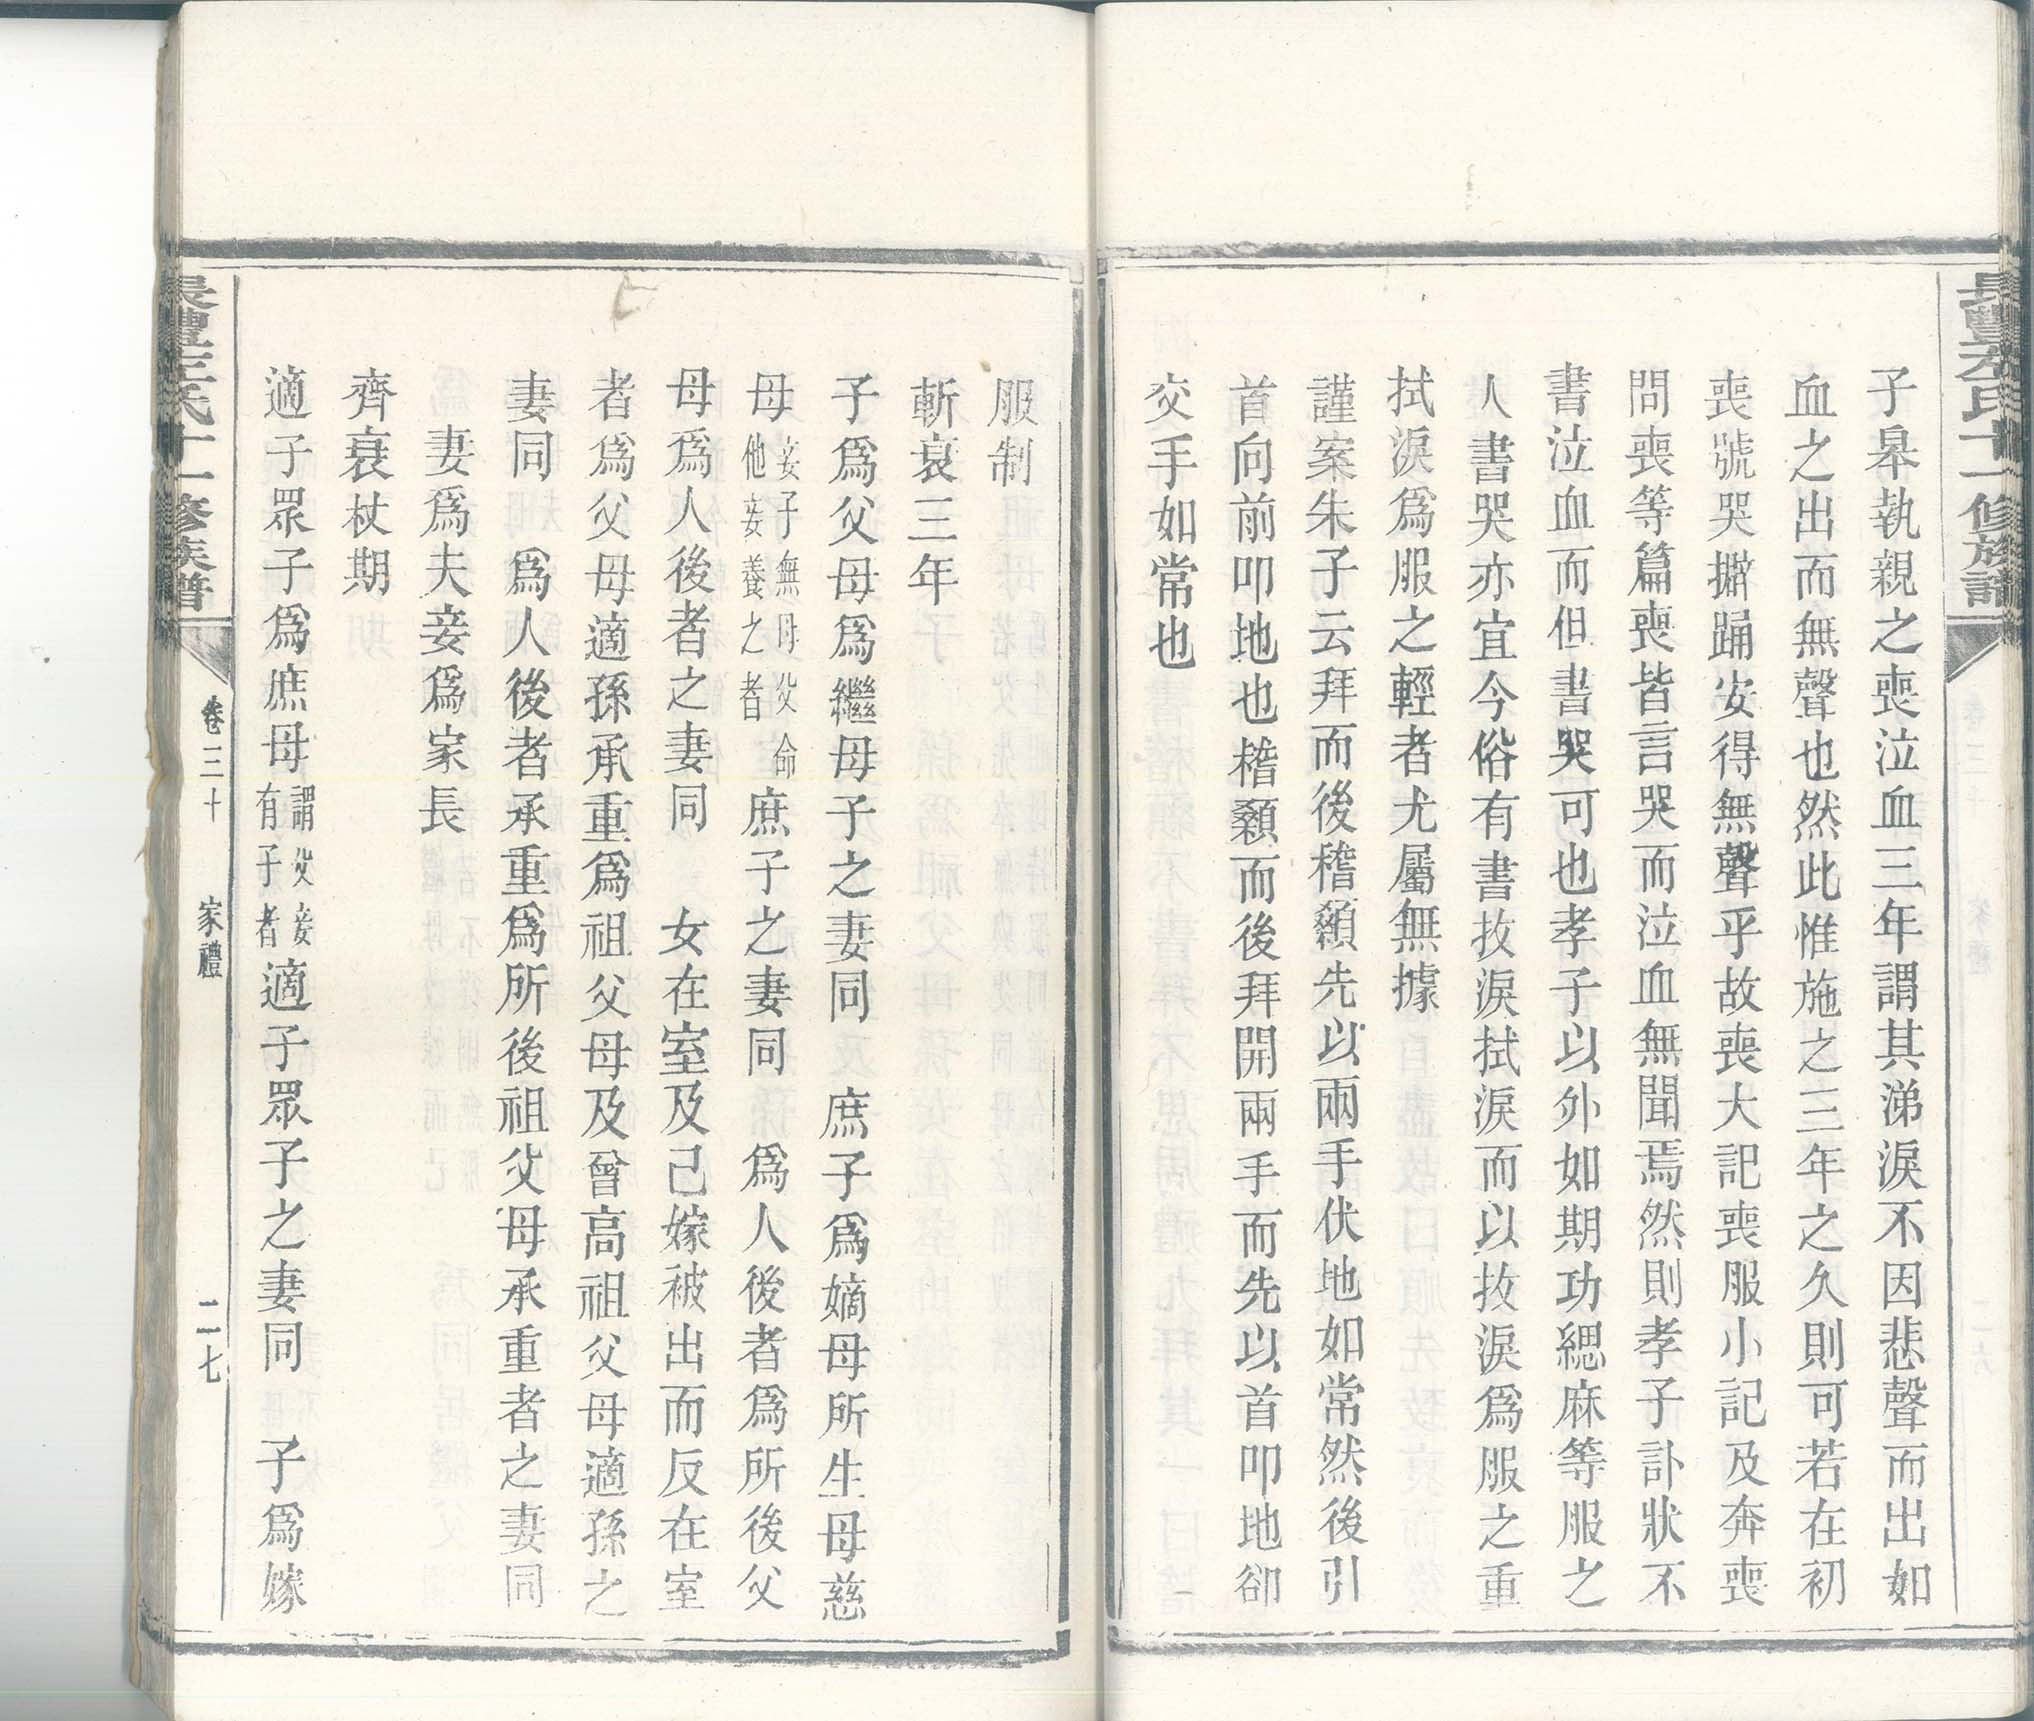 子皋執親之喪泣血三年謂其涕淚不因悲聲而出如
血之出而無聲也然此惟施之三年之久則可若在初
喪號哭擗踊安得無聲乎故喪大記喪服小記及奔喪
問喪等篇喪皆言哭而泣血無聞焉然則孝子訃狀不
書泣血而但書哭可也孝子以外如期功緦麻等服之
人書哭亦宜今俗有書抆淚拭淚而以抆淚爲服之重
拭淚爲服之輕者尤屬無據
謹案朱子云拜而後稽顙先以兩手伏地如常然後引
首向前叩地也稽顙而後拜開兩手而先以首叩地卻
交手如常也
服制
斬衰三年
子爲父母爲繼母子之妻同　庶子爲嫡母所生母慈
母妾子無母父命他妾養之者庶子之妻同　爲人後者爲所後父
母爲人後者之妻同　女在室及己嫁被出而反在室
者爲父母適孫承重爲祖父母及曾高祖父母適孫之
妻同　爲人後者承重爲所後祖父母承重者之妻同
妻爲夫妾爲家長
齊衰杖期
適子眾子爲庶母謂父妾有子者適子眾子之妻同　子爲嫁
長豐左氏十一修族譜
卷三十
家禮
二七